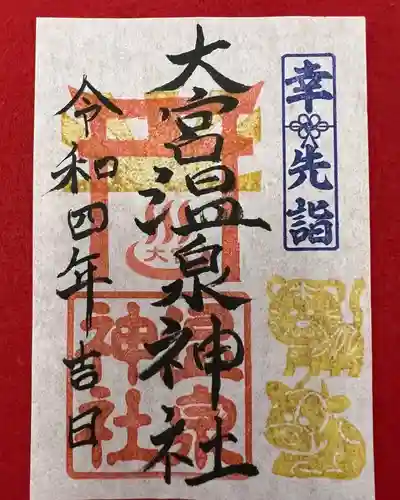 幸先詣
大宮温泉神社
令和四年吉日
大宮
温泉
神社